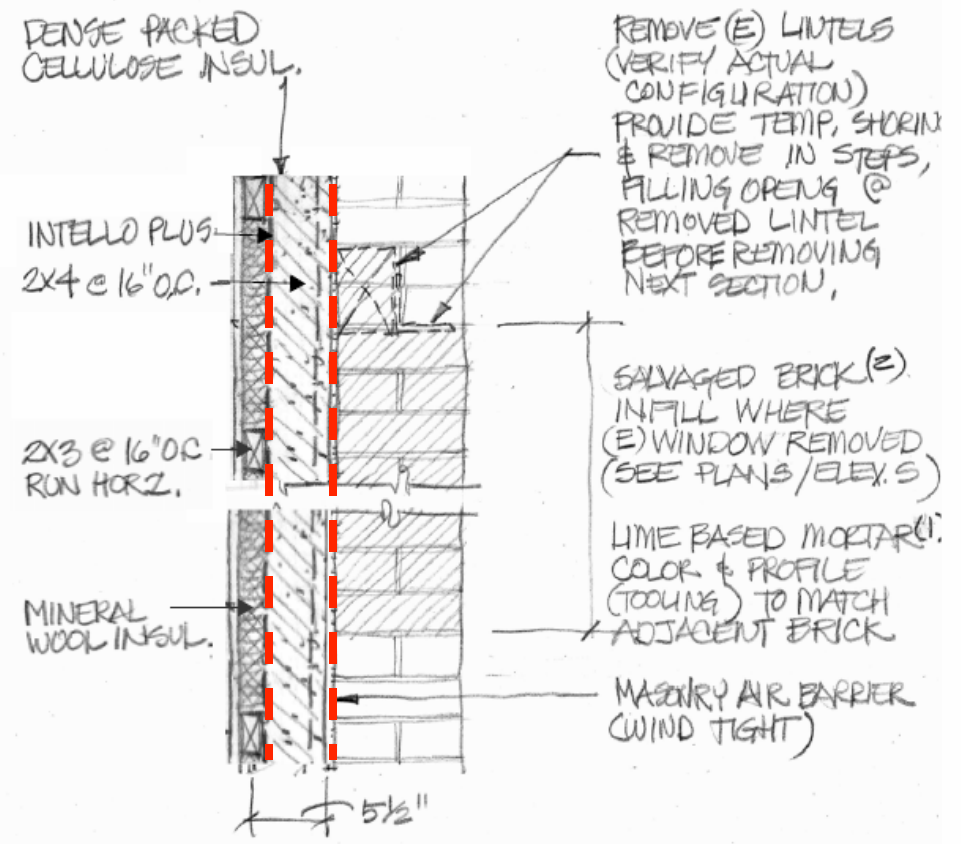 DENSE PACKED
CELLULOSE INSUL.
INTELLO PLUS
2X4 @ 16" O.C.
2X3 @ 16" O.C
RUN HORZ.
MINERAL
WOOL INSUL.
REMOVE (E) LINTELS
(VERIFY ACTUAL
CONFIGURATION)
PROVIDE TEMP. SHORIN
& REMOVE IN STEPS,
FILLING OPENG @
REMOVED LINTEL
BEFORE REMOVING
NEXT SECTION.
SALVAGED BRICK (2)
INFILL WHERE
(E) WINDOW REMOVED
(SEE PLANS/ELEV.S)
LIME BASED MORTAR (1)
COLOR & PROFILE
(TOOLING) TO MATCH
ADJACENT BRICK
MASONRY AIR BARRIER
(WIND TIGHT)
5 1/2"